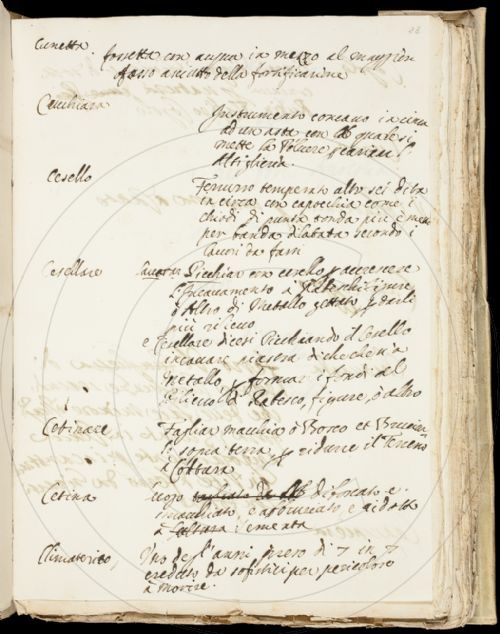 28
Cunetta. fossetta con acqua in mezzo al maggior
fosso asciutto della fortificazione
Cucchiara Instrumento concavo in cima
ad un asta con il quale si
mette la Polvere
Artiglieria.
Cesello Ferruzzo temperato alto sei dita
in circa con capocchia come i
chiodi di punta tonda più e meno
per banda dilatata secondo i
lavori da farsi
Cesellare Picchiar con cesello accrescere
l'incavamento a Rabeschi figure
o altro di Metallo gettato darli
più rilievo
e Cesellare dicesi Picchiando il Cesello
incavare piastra di che che sia
Metallo, formar i fondi al
rilievo Rabesco, figure, o altro
Cetinare Tagliar macchia o Bosco et Bruciar
sopra terra, ridurre il Terreno
a Coltura
Cetina luogo tagliato diboscato e
smacchiato, e abbruciato e ridotto
a Cultura e sementa
Climaterico, Uno degl'anni preso di 7 in 7
creduto da sofistici per pericoloso
a morire.